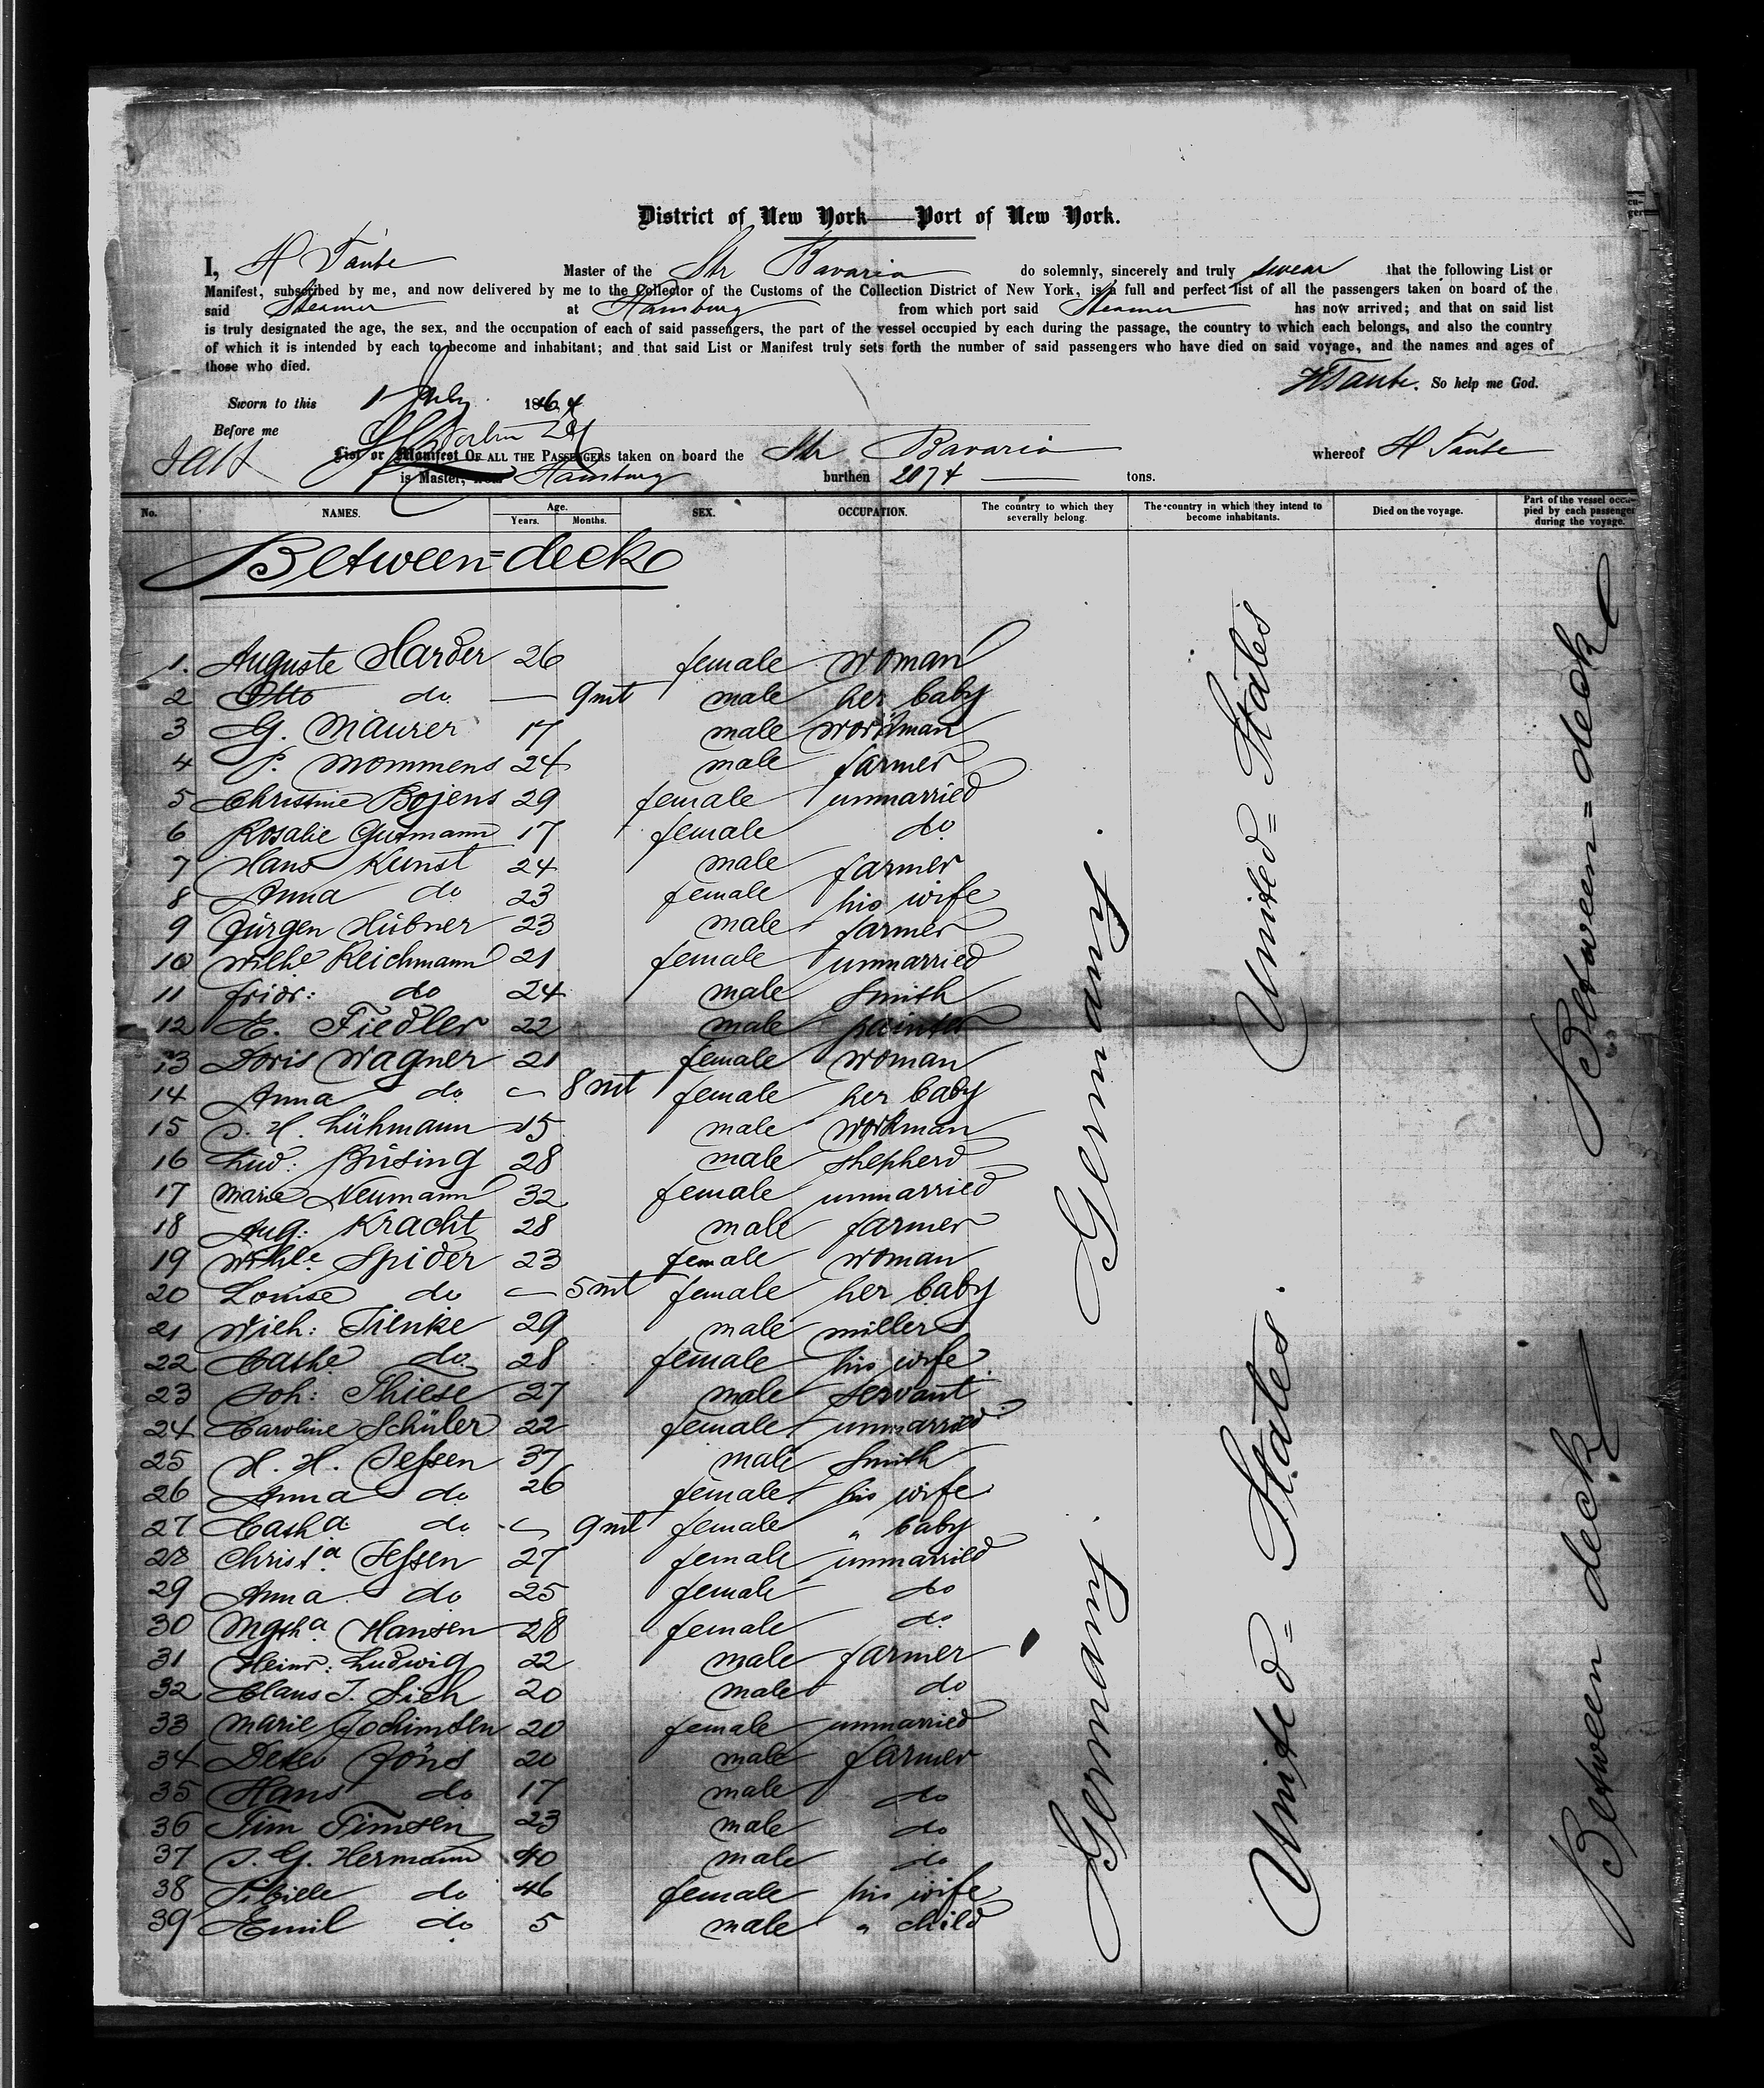 District of New York — Port of New York.
I, H Taube Master of the Str Bavaria do solemnly, sincerely and truly swear that the following List or
Manifest, subscribed by me, and now delivered by me to the Collector of the Customs of the Collection District of New York, is a full and perfect list of all the passengers taken on board of the
said Steamer at Hamburg from which port said Steamer has now arrived; and that on said list
is truly designated the age, the sex, and the occupation of each of said passengers, the part of the vessel occupied by each during the passage, the country to which each belongs, and also the country
of which it is intended by each to become and inhabitant; and that said List or Manifest truly sets forth the number of said passengers who have died on said voyage, and the names and ages of
those who died.
HTaube. So help me God.
Sworn to this 1 July 1864
Before me
List or Manifest OF ALL THE PASSENGERS taken on board the Str Bavaria whereof H Taube
is Master, from Hamburg burthen 2074 tons.
No. NAMES. Age. Years. Months. SEX. OCCUPATION. The country to which they severally belong. The country in which they intend to become inhabitants. Died on the voyage. Part of the vessel occupied by each passenger during the voyage.
Between=deck
1. Auguste Harder 26 female woman
2 Otto do. — 9mt male her baby
3 G. Maurer 17 male workman
4 P. Mommens 24 male farmer
5 Christine Bojens 29 female unmarried
6 Rosalie Gutmann 17 female do
7 Hans Kunst 24 male farmer
8 Anna do 23 female his wife
9 Jürgen Hübner 23 male farmer
10 Wilhe Reichmann 21 female unmarried
11 fridr: do 24 male Smith
12 E. Fiedler 22 male painter
13 Doris Wagner 21 female woman
14 Anna do — 8 mt female her baby
15 J. H. Lühmann 15 male workman
16 Lud: Büsing 28 male shepherd
17 Marie Neumann 32 female unmarried
18 Aug: Kracht 28 male farmer
19 Wilhe Spider 23 female woman
20 Louise do — 5 mt female her baby
21 Wilh: Tienke 29 male miller
22 Cathe do 28 female his wife
23 Joh: Thiese 27 male servant
24 Caroline Schüler 22 female unmarried
25 H. H. Jessen 37 male Smith
26 Anna do 26 female his wife
27 Catha do — 9 mt female " baby
28 Christa Jessen 27 female unmarried
29 Anna do 25 female do
30 Mgtha Hansen 28 female do
31 Heinr: Ludwig 22 male farmer
32 Claus J. Sieh 20 male do
33 Marie Jochimsen 20 female unmarried
34 Detlev Jöns 20 male farmer
35 Hans do 17 male do
36 Tim Timsen 23 male do
37 J. G. Hermann 40 male do
38 Sibille do 46 female his wife
39 Emil do 5 male " child
Germany.
Germany.
United=States
United=States.
Between=deck
Between deck